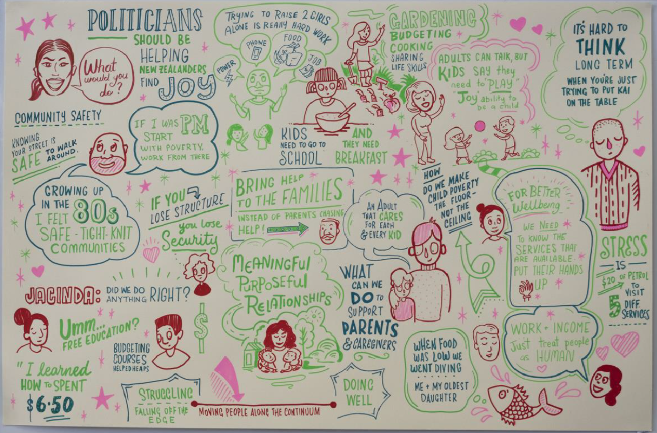 POLITICIANS
SHOULD BE
HELPING
NEW ZEALANDERS
FIND JOY
What
would you
do?
TRYING TO RAISE 2 GIRLS
ALONE IS REALLY HARD WORK
POWER
PHONE
FOOD
JOB
GARDENING
BUDGETING
COOKING
SHARING
LIFE SKILLS
ADULTS CAN TALK, BUT
KIDS SAY they
need to "PLAY"
Joy = ability to
be a child
IT'S HARD TO
THINK
LONG TERM
WHEN YOU'RE JUST
TRYING TO PUT KAI
ON THE TABLE
COMMUNITY SAFETY
KNOWING
YOUR STREET IS
SAFE TO WALK
AROUND.
IF I WAS PM
START
WITH POVERTY,
WORK FROM THERE
KIDS
NEED TO GO TO
SCHOOL
AND
THEY NEED
BREAKFAST
GROWING UP
IN THE 80s
I FELT
SAFE - TIGHT-KNIT
COMMUNITIES
IF YOU
LOSE STRUCTURE
you lose
Security
BRING HELP
TO THE FAMILIES
INSTEAD OF PARENTS CHASING
HELP!
AN ADULT
THAT CARES
FOR EACH
& EVERY KID
HOW
DO WE MAKE
CHILD POVERTY
THE FLOOR-
NOT THE
CEILING
FOR BETTER
Wellbeing
WE NEED
TO KNOW THE
SERVICES THAT
ARE AVAILABLE
PUT THEIR HANDS
UP
STRESS
IS
$20 OF PETROL
TO VISIT
5 DIFF
SERVICES
JACINDA:
DID WE DO
ANYTHING RIGHT?
MEANINGFUL
PURPOSEFUL
RELATIONSHIPS
WHAT
CAN WE
DO TO
SUPPORT
PARENTS
& CAREGIVERS
Umm...
FREE EDUCATION?
BUDGETING
COURSES
HELPED HEAPS
$
"I learned
HOW TO SPENT
$6.50
WHEN FOOD
WAS LOW WE
WENT DIVING
ME + MY OLDEST
DAUGHTER
WORK + INCOME
Just treat people
as HUMAN
STRUGGLING
FALLING OFF THE
EDGE
MOVING PEOPLE ALONG THE CONTINUUM
DOING
WELL